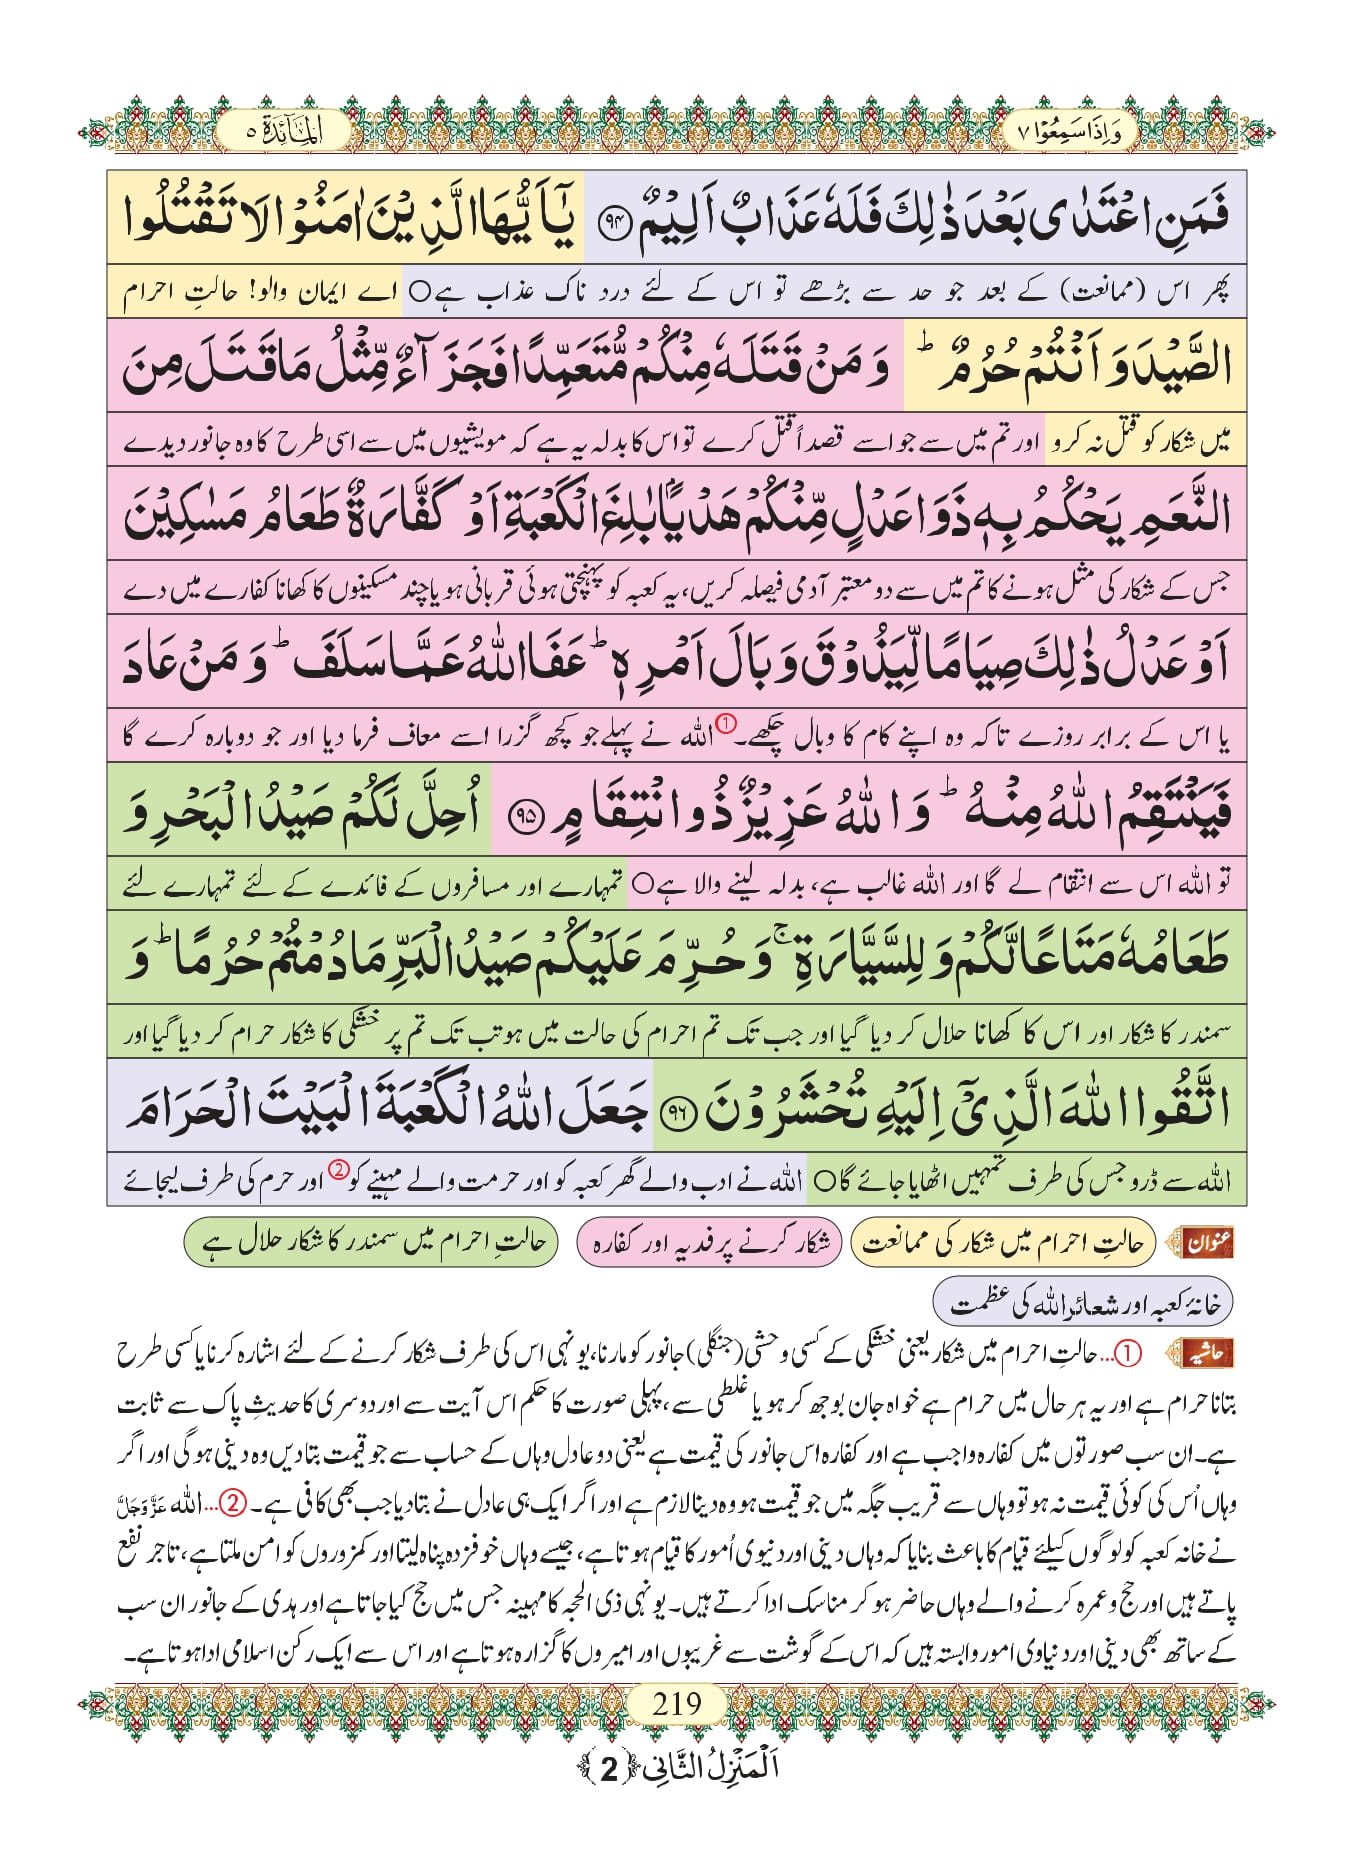 وَاِذَا سَمِعُوْا ۷
اَلْمَآئِدَة ۵
فَمَنِ اعْتَدٰى بَعْدَ ذٰلِكَ فَلَهٗ عَذَابٌ اَلِيْمٌ ﴿۹۴﴾ يٰۤاَيُّهَا الَّذِيْنَ اٰمَنُوْا لَا تَقْتُلُوا
پھر اس (ممانعت) کے بعد جو حد سے بڑھے تو اس کے لئے درد ناک عذاب ہے○ اے ایمان والو! حالتِ احرام
الصَّيْدَ وَ اَنْتُمْ حُرُمٌ ؕ وَ مَنْ قَتَلَهٗ مِنْكُمْ مُّتَعَمِّدًا فَجَزَآءٌ مِّثْلُ مَا قَتَلَ مِنَ
میں شکار کو قتل نہ کرو اور تم میں سے جو اسے قصداً قتل کرے تو اس کا بدلہ یہ ہے کہ مویشیوں میں سے اسی طرح کا وہ جانور دیدے
النَّعَمِ يَحْكُمُ بِهٖ ذَوَا عَدْلٍ مِّنْكُمْ هَدْيًۢا بٰلِغَ الْكَعْبَةِ اَوْ كَفَّارَةٌ طَعَامُ مَسٰكِيْنَ
جس کے شکار کی مثل ہونے کا تم میں سے دو معتبر آدمی فیصلہ کریں، یہ کعبہ کو پہنچتی ہوئی قربانی ہو یا چند مسکینوں کا کھانا کفارے میں دے
اَوْ عَدْلُ ذٰلِكَ صِيَامًا لِّيَذُوْقَ وَبَالَ اَمْرِهٖ ؕ عَفَا اللّٰهُ عَمَّا سَلَفَ ؕ وَ مَنْ عَادَ
یا اس کے برابر روزے تاکہ وہ اپنے کام کا وبال چکھے۔① اللہ نے پہلے جو کچھ گزرا اسے معاف فرما دیا اور جو دوبارہ کرے گا
فَيَنْتَقِمُ اللّٰهُ مِنْهُ ؕ وَ اللّٰهُ عَزِيْزٌ ذُو انْتِقَامٍ ﴿۹۵﴾ اُحِلَّ لَكُمْ صَيْدُ الْبَحْرِ وَ
تو اللہ اس سے انتقام لے گا اور اللہ غالب ہے، بدلہ لینے والا ہے○ تمہارے اور مسافروں کے فائدے کے لئے تمہارے لئے
طَعَامُهٗ مَتَاعًا لَّكُمْ وَ لِلسَّيَّارَةِ ۚ وَ حُرِّمَ عَلَيْكُمْ صَيْدُ الْبَرِّ مَا دُمْتُمْ حُرُمًا ؕ وَ
سمندر کا شکار اور اس کا کھانا حلال کر دیا گیا اور جب تک تم احرام کی حالت میں ہو تب تک تم پر خشکی کا شکار حرام کر دیا گیا اور
اتَّقُوا اللّٰهَ الَّذِيْۤ اِلَيْهِ تُحْشَرُوْنَ ﴿۹۶﴾ جَعَلَ اللّٰهُ الْكَعْبَةَ الْبَيْتَ الْحَرَامَ
اللہ سے ڈرو جس کی طرف تمہیں اٹھایا جائے گا○ اللہ نے ادب والے گھر کعبہ کو اور حرمت والے مہینے کو② اور حرم کی طرف لیجائے
عنوان حالتِ احرام میں شکار کی ممانعت شکار کرنے پر فدیہ اور کفارہ حالتِ احرام میں سمندر کا شکار حلال ہے
خانۂ کعبہ اور شعائر اللہ کی عظمت
حاشیہ ①...حالتِ احرام میں شکار یعنی خشکی کے کسی وحشی (جنگلی) جانور کو مارنا، یونہی اس کی طرف شکار کرنے کے لئے اشارہ کرنا یا کسی طرح
بتانا حرام ہے اور یہ ہر حال میں حرام ہے خواہ جان بوجھ کر ہو یا غلطی سے، پہلی صورت کا حکم اس آیت سے اور دوسری کا حدیثِ پاک سے ثابت
ہے۔ ان سب صورتوں میں کفارہ واجب ہے اور کفارہ اس جانور کی قیمت ہے یعنی دو عادل وہاں کے حساب سے جو قیمت بتا دیں وہ دینی ہو گی اور اگر
وہاں اُس کی کوئی قیمت نہ ہو تو وہاں سے قریب جگہ میں جو قیمت ہو وہ دینا لازم ہے اور اگر ایک ہی عادل نے بتا دیا جب بھی کافی ہے۔ ②...اللہ عَزَّوَجَلَّ
نے خانہ کعبہ کو لوگوں کیلئے قیام کا باعث بنایا کہ وہاں دینی اور دنیوی اُمور کا قیام ہوتا ہے، جیسے وہاں خوفزدہ پناہ لیتا اور کمزوروں کو امن ملتا ہے، تاجر نفع
پاتے ہیں اور حج و عمرہ کرنے والے وہاں حاضر ہو کر مناسک ادا کرتے ہیں۔ یونہی ذی الحجہ کا مہینہ جس میں حج کیا جاتا ہے اور ہدی کے جانور ان سب
کے ساتھ بھی دینی اور دنیاوی امور وابستہ ہیں کہ اس کے گوشت سے غریبوں اور امیروں کا گزارہ ہوتا ہے اور اس سے ایک رکن اسلامی ادا ہوتا ہے۔
219
اَلْمَنْزِلُ الثَّانِی ﴿2﴾